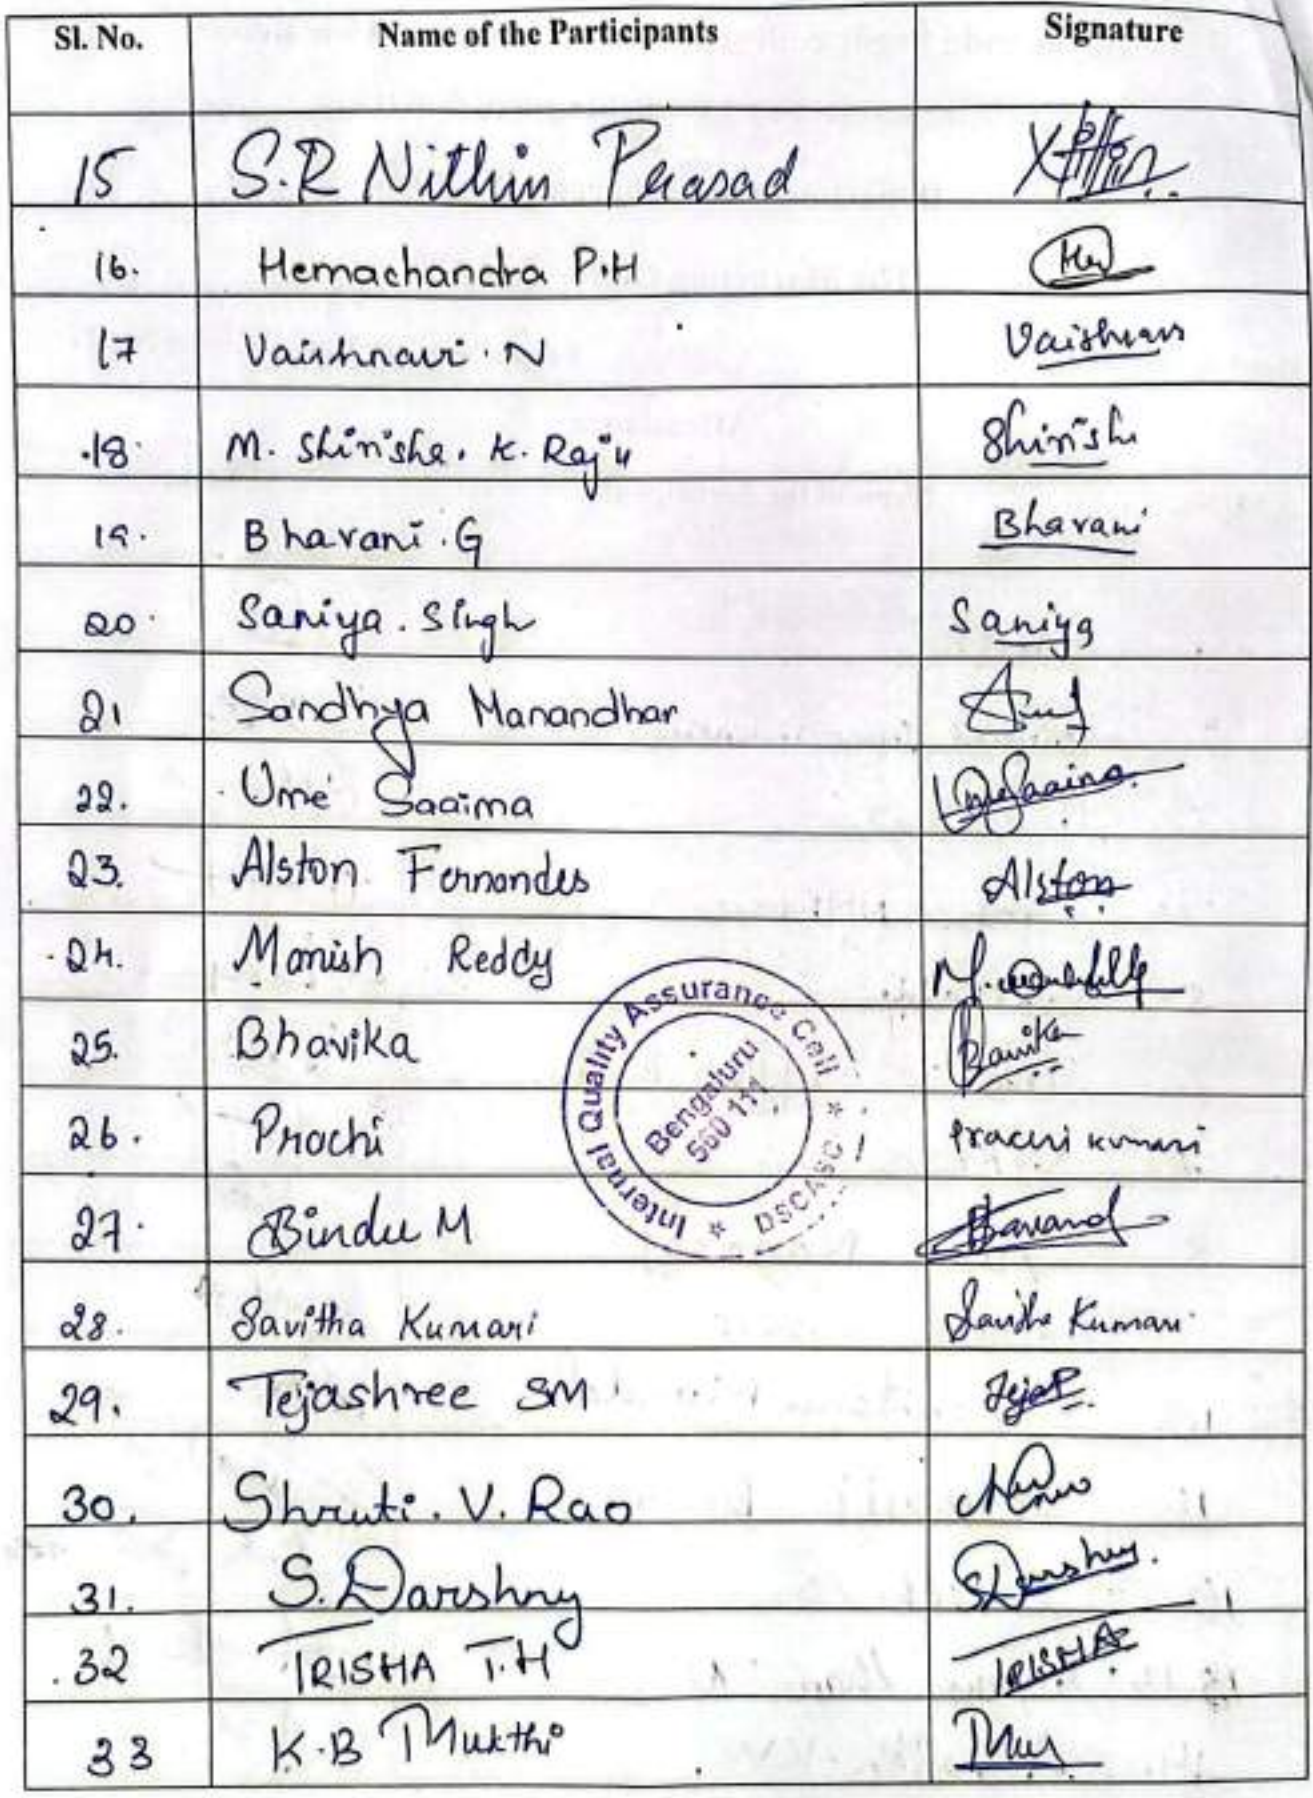 Sl. No. Name of the Participants Signature
15 S.R Nithin Prasad
16. Hemachandra P.H
17 Vaishnavi. N Vaishnavi
.18. M. Shirisha. K. Raju Shirisha
19. Bhavani .G Bhavani
20. Saniya. Singh Saniya
21 Sandhya Manandhar
22. Ume Saaima UmeSaaima
23. Alston Fernandes Alston
24. Manish Reddy
25. Bhavika
26. Prachi Prachi Kumari
27. Bindu M
28. Savitha Kumari Savitha Kumari
29. Tejashree SM Teja
30. Shruti. V. Rao
31. S. Darshny S Darshny.
32 TRISHA T.H TRISHA
33 K.B Mukthi
Internal Quality Assurance Cell * DSCASC *
Bengaluru
560 111